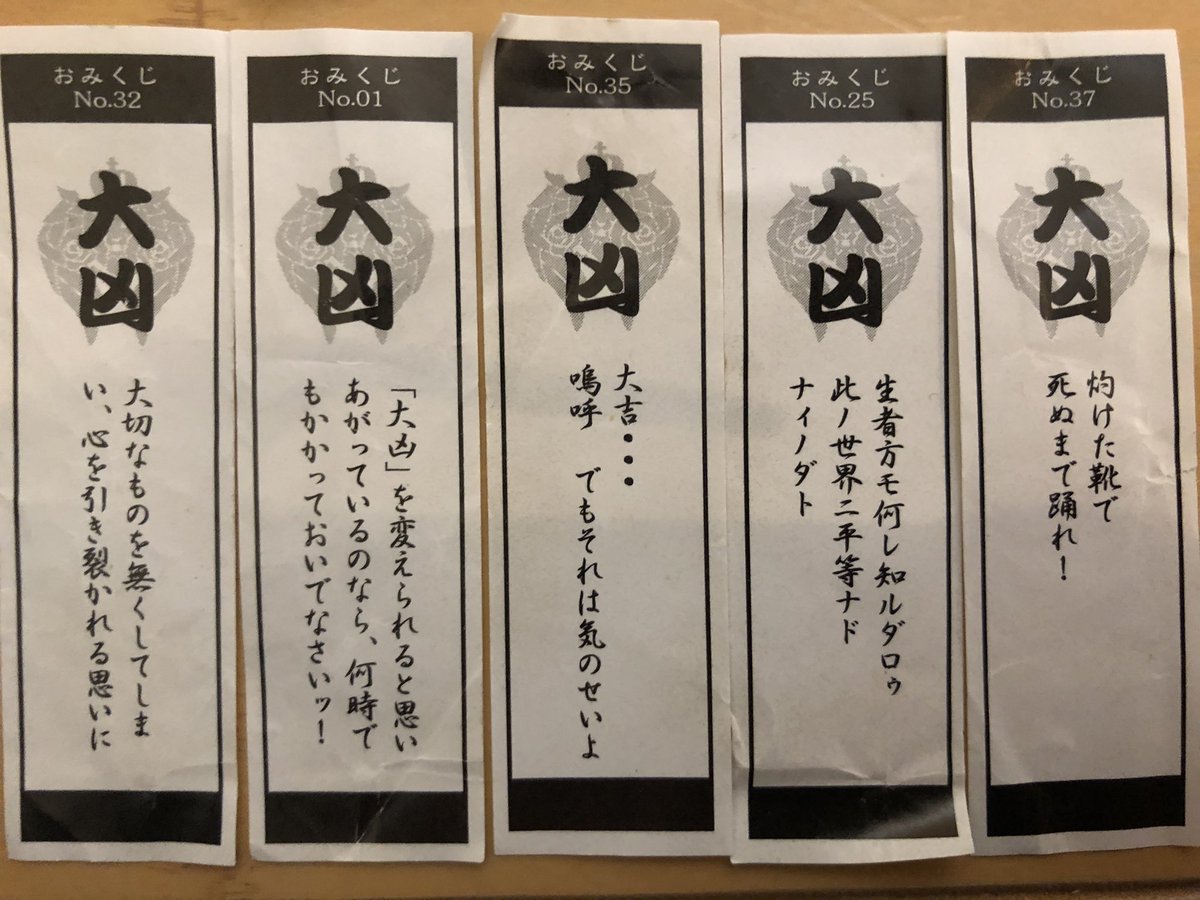 おみくじ
No.32
大凶
大切なものを無くしてしま
い、心を引き裂かれる思いに
おみくじ
No.01
大凶
「大凶」を変えられると思い
あがっているのなら、何時で
もかかっておいでなさいッ！
おみくじ
No.35
大凶
大吉・・・
嗚呼　でもそれは気のせいよ
おみくじ
No.25
大凶
生者方モ何レ知ルダロゥ
此ノ世界ニ平等ナド
ナィノダト
おみくじ
No.37
大凶
灼けた靴で
死ぬまで踊れ！